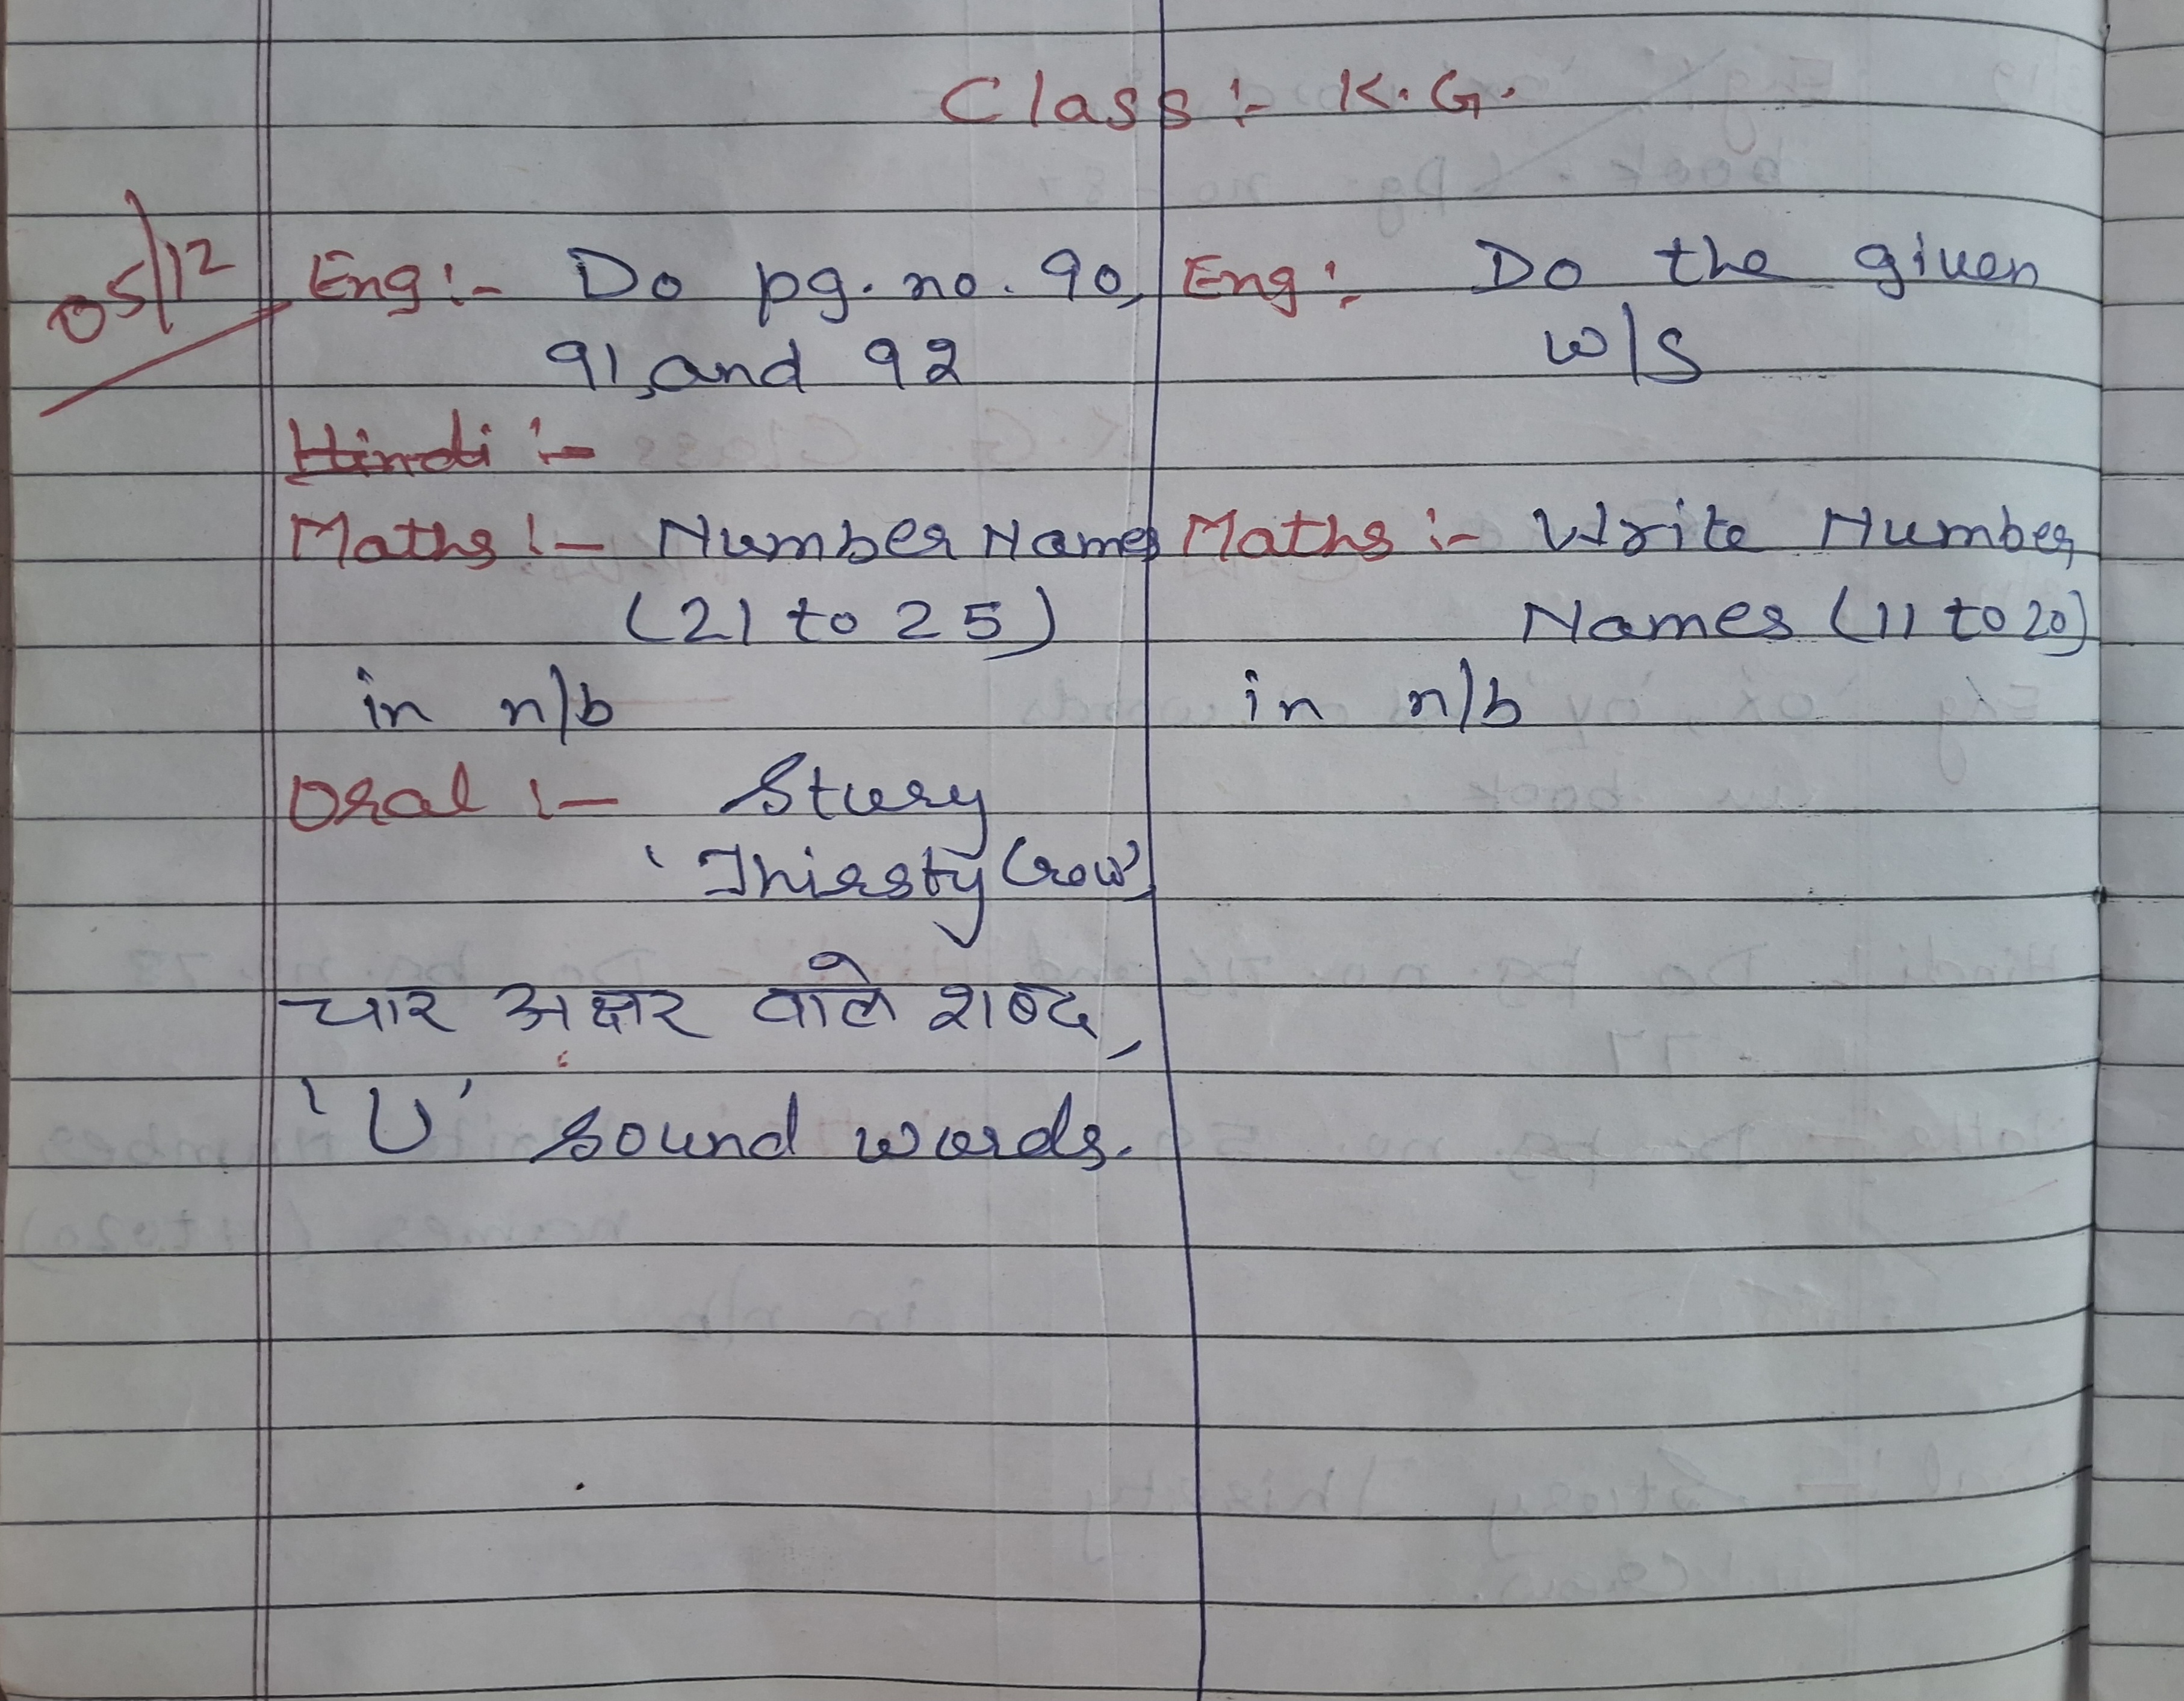 Class :- K.G.
05/12
Eng :- Do pg. no. 90,
91, and 92
Hindi :-
Maths :- Number Names
(21 to 25)
in n/b
Oral :- Story
'Thirsty Crow',
चार अक्षर वाले शब्द,
'U' sound words.
Eng :- Do the given
w/s
Maths :- Write Number
Names (11 to 20)
in n/b